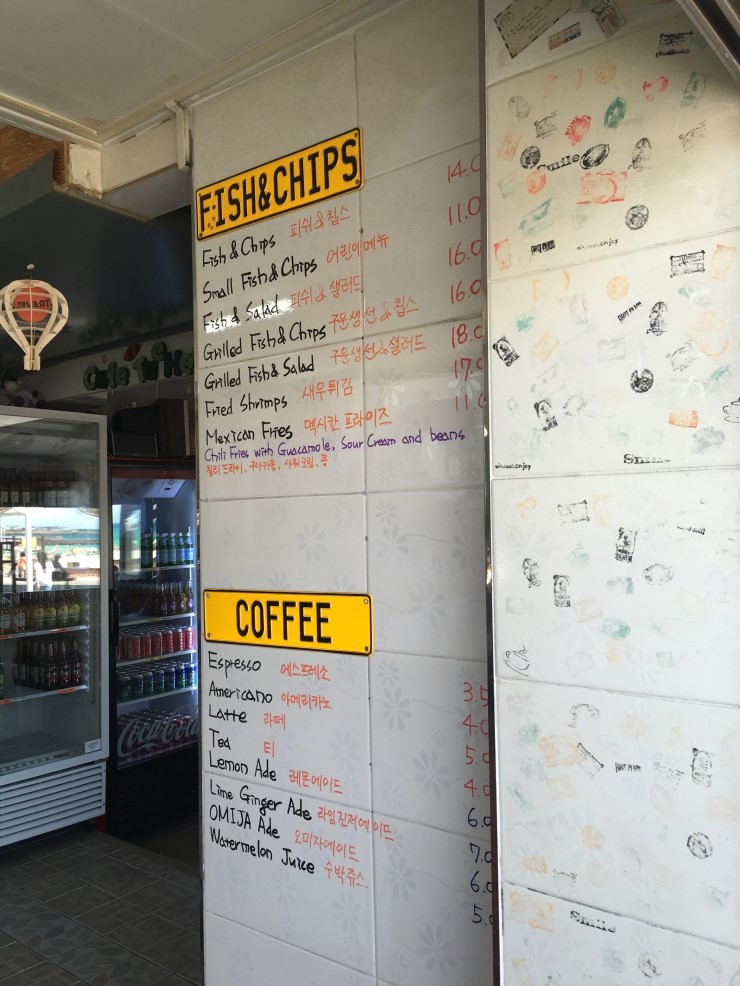 FISH&CHIPS
Fish & Chips 피쉬&칩스 14.0
Small Fish & Chips 어린이메뉴 11.0
Fish & Salad 피쉬&샐러드 16.0
Grilled Fish & Chips 구운생선&칩스 16.0
Grilled Fish & Salad 구운생선&샐러드 18.0
Fried Shrimps 새우튀김 17.0
Mexican Fries 멕시칸 프라이즈 11.0
Chili Fries with Guacamole, Sour Cream and beans
COFFEE
Espresso 에스프레소 3.5
Americano 아메리카노 4.0
Latte 라떼 5.0
Tea 티 4.0
Lemon Ade 레몬에이드 6.0
Lime Ginger Ade 라임진저에이드 7.0
OMIJA Ade 오미자에이드 6.0
Watermelon Juice 수박쥬스 5.0
TRAVEL
Coca-Cola
Smile
Smile
Smile